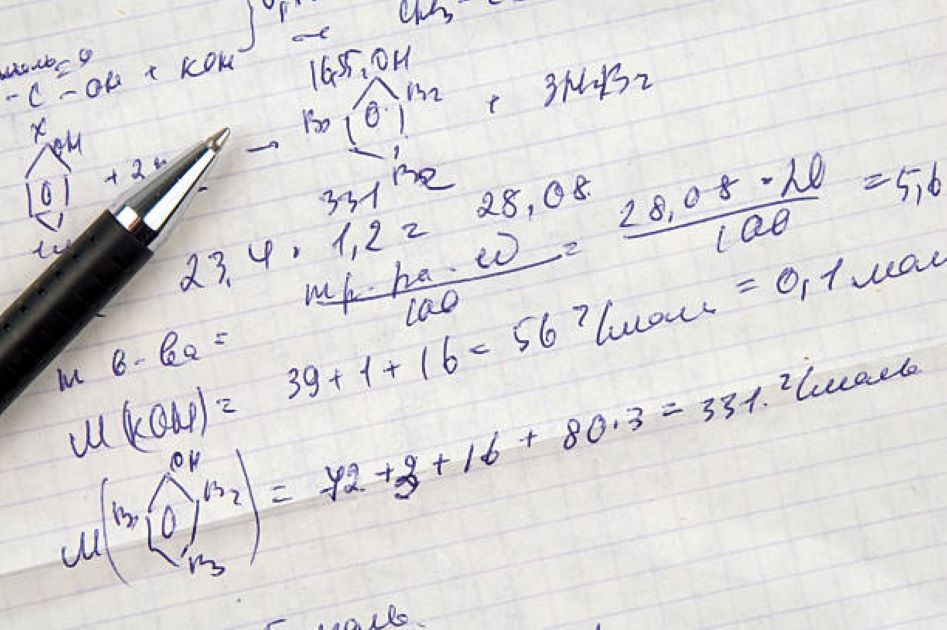 - C - OH + KOH
16,5. OH
Br Br + 3HBr
X OH
O
→
O
Br
331
23,4 . 1,2 = 28,08
m в-ва = mр.ра . W / 100 = 28,08 . 20 / 100 = 5,6
M(KOH) = 39 + 1 + 16 = 56 г/моль = 0,1 мол
M( Br OH Br Br ) = 72 + 3 + 16 + 80 . 3 = 331. г/моль
моль.